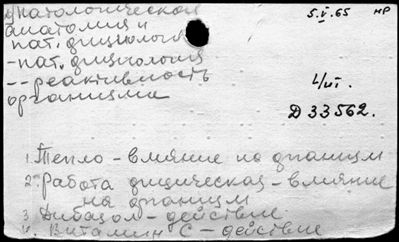 патологической
анатомии и
пат. физиологии
- пат. физиология
-- реактивность
организма
5.V.65 НР
4/VI.
Д 33562.
1. Тепло - влияние на организм
2. Работа физическая - влияние
на организм
3. Дибазол - действие
4. Витамин С - действие